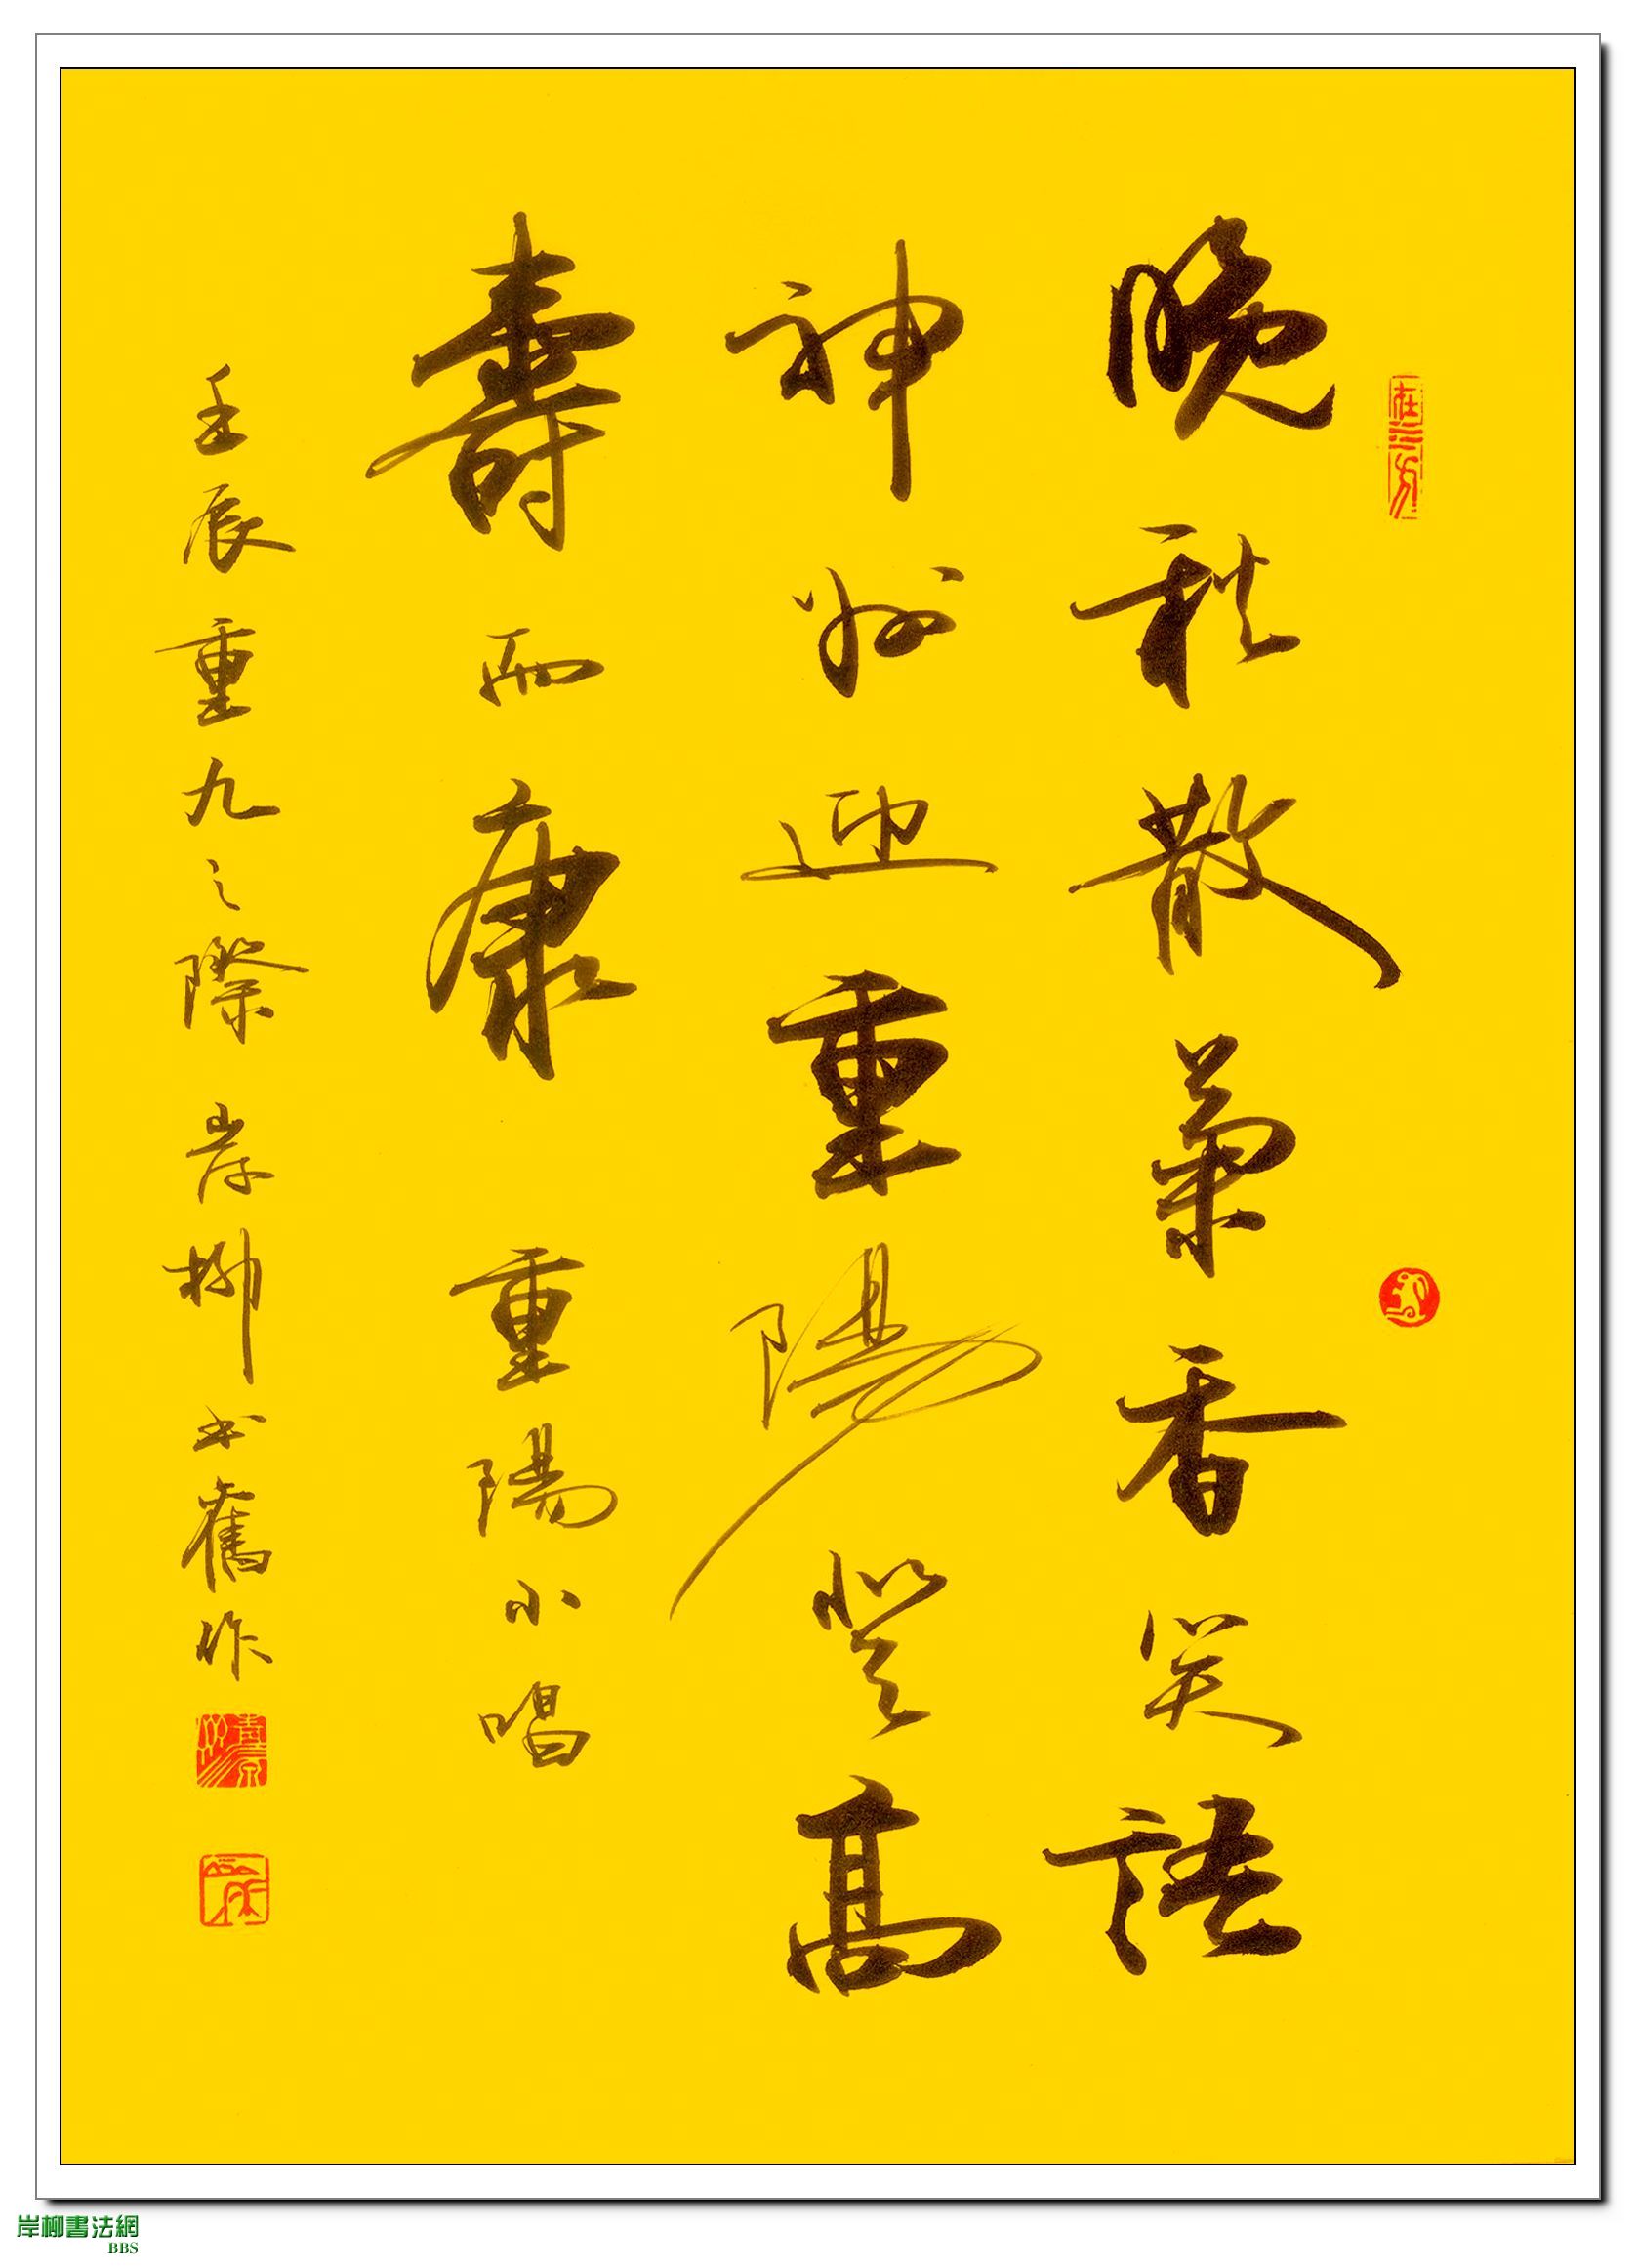 晚秋散菊香笑語
神州迎重陽登高
壽而康 重陽小唱
壬辰重九之際 岸柳书舊作
岸柳書法網
BBS